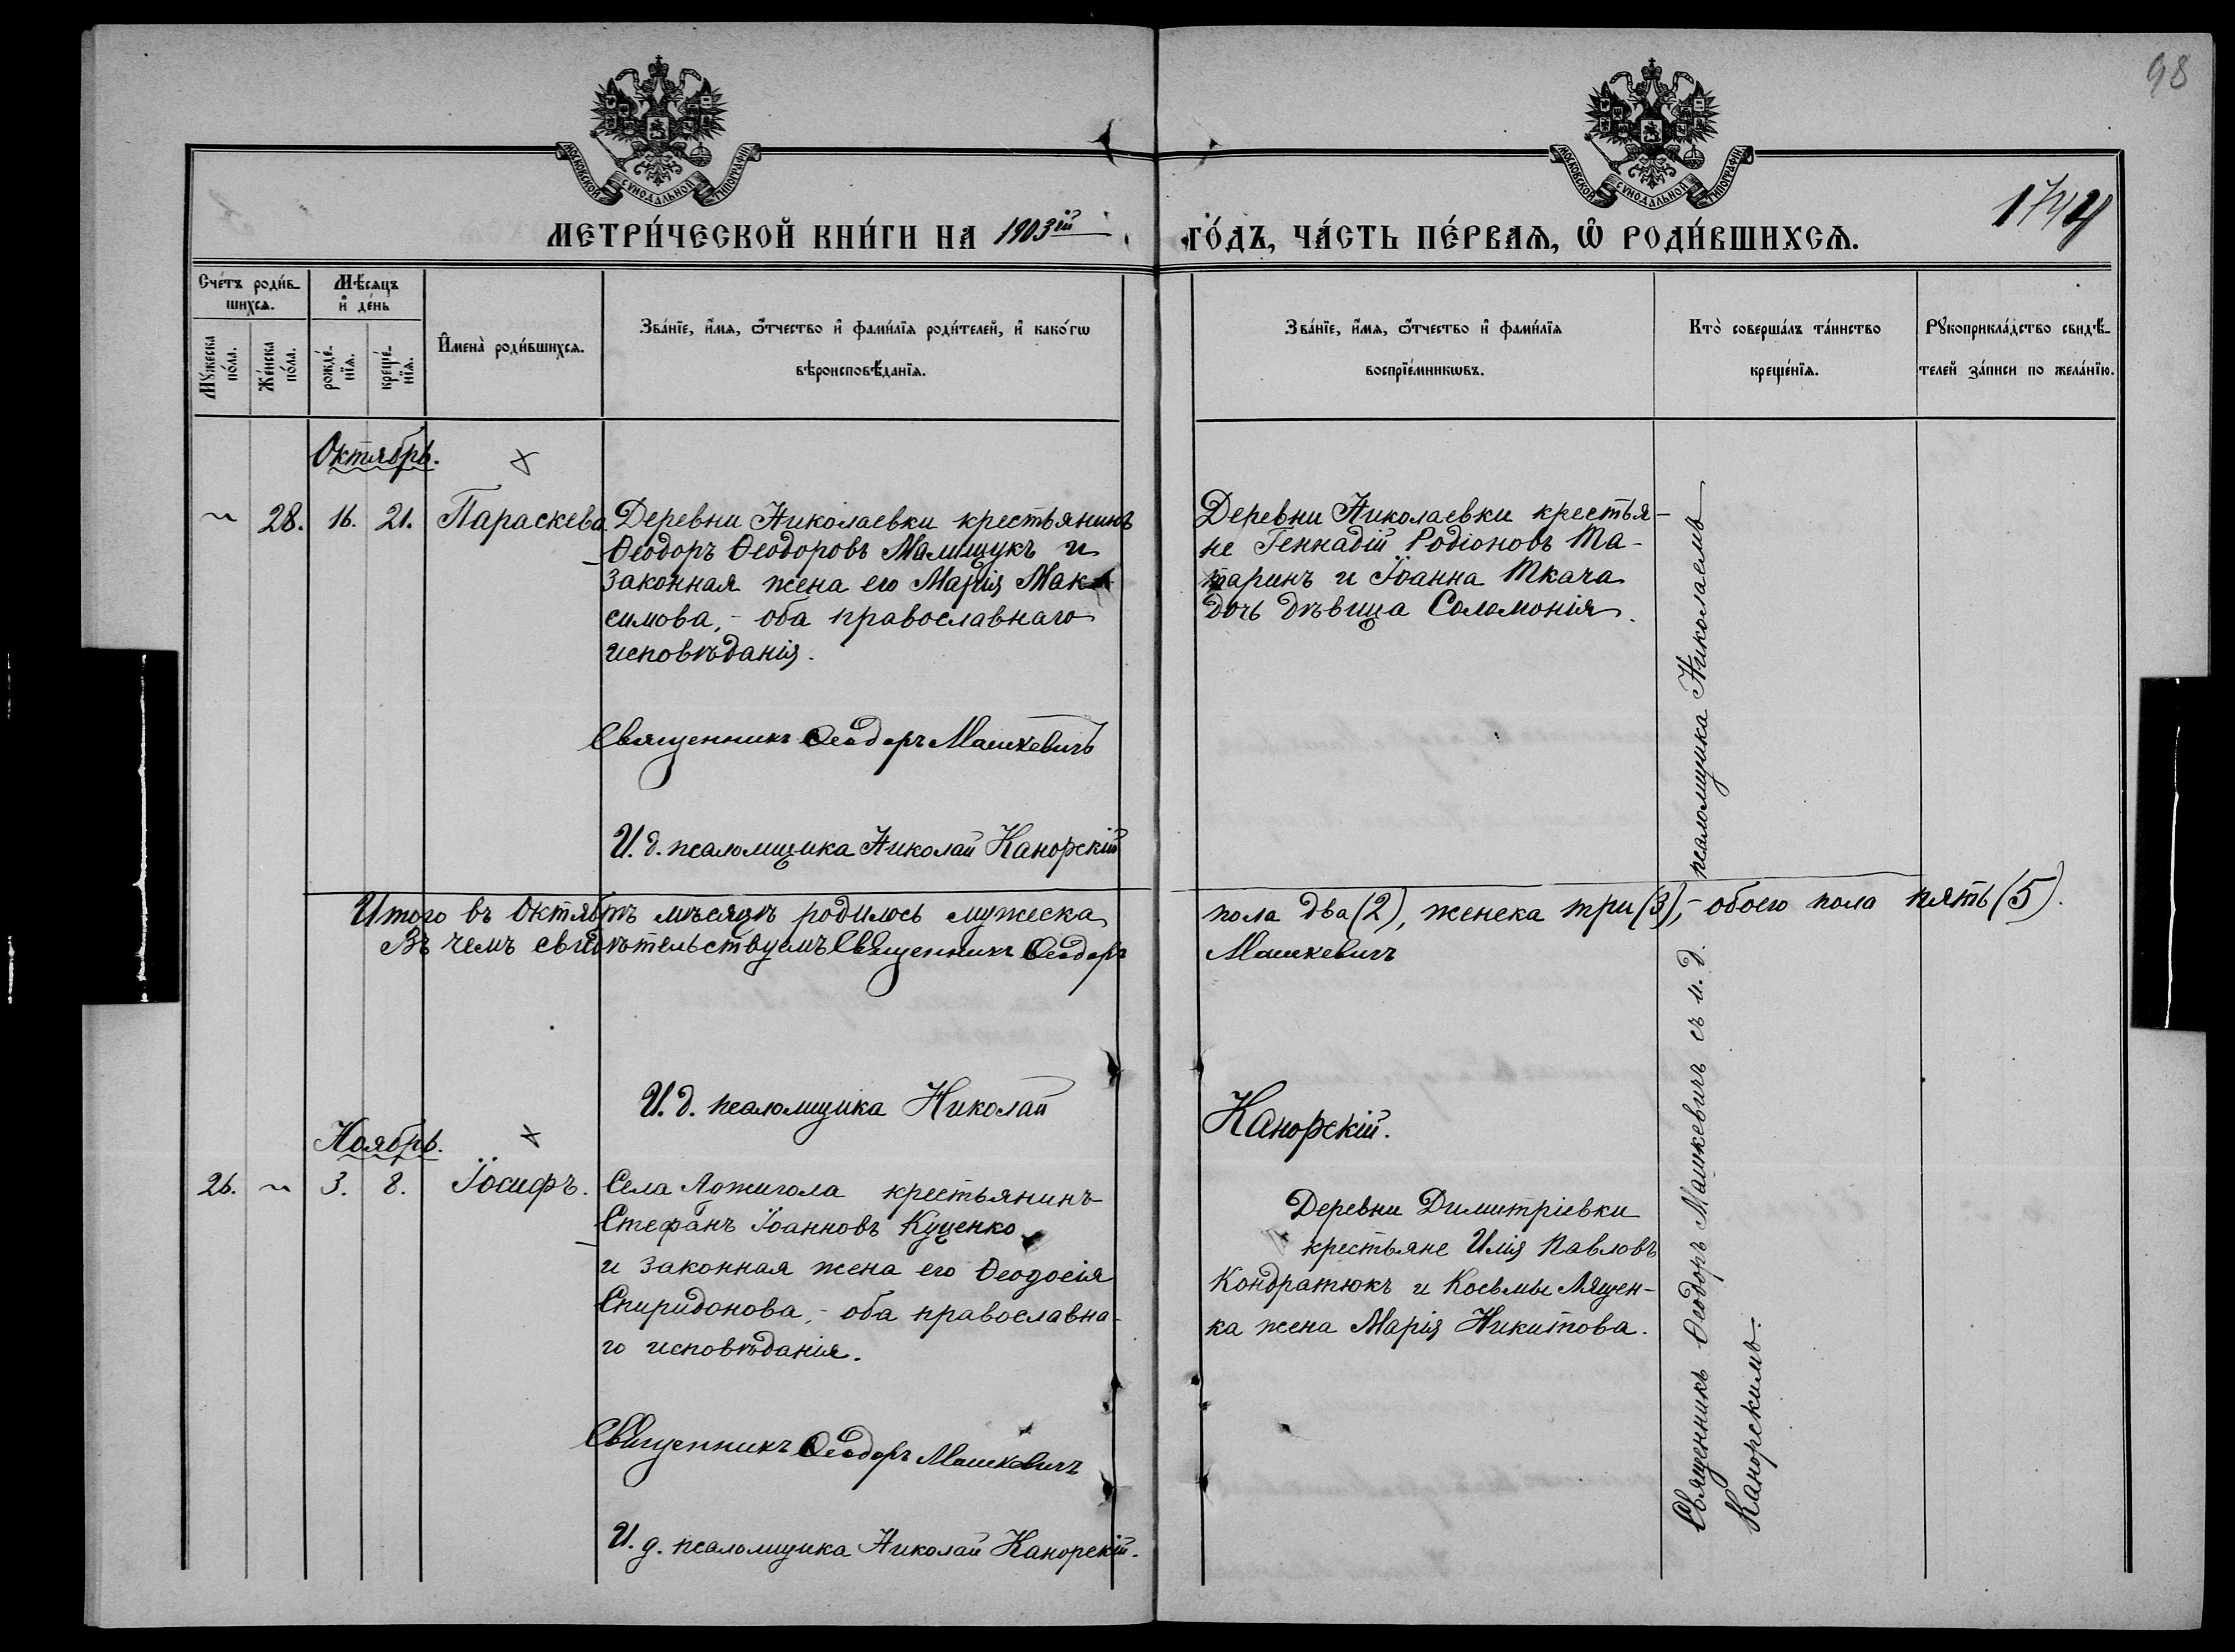 98
МОСКОВСКОЙ СѴНОДАЛЬНОЙ ТИПОГРАФІИ
МОСКОВСКОЙ СѴНОДАЛЬНОЙ ТИПОГРАФІИ
МЕТРИ́ЧЕСКОЙ КНИ́ГИ НА 1903ій
ГО́ДЪ, ЧА́СТЬ ПЕ́РВАѦ, Ѡ҆ РОДИ́ВШИХСѦ.
Сче́тъ роди́в-
шихсѧ.
Мѣ́сѧцъ
и҆ де́нь
Мꙋ́жеска
по́ла.
Же́нска
по́ла.
рожде́-
нїѧ.
креще́-
нїѧ.
И҆мена̀ роди́вшихсѧ.
Зва́нїе, и҆́мѧ, ѻ҆́тчество и҆ фами́лїѧ роди́телей, и҆ како́гѡ
вѣроисповѣ́данїѧ.
Зва́нїе, и҆́мѧ, ѻ҆́тчество и҆ фами́лїѧ
воспрїе́мникѡвъ.
Кто̀ соверша́лъ та́инство
креще́нїѧ.
Рꙋкоприкла́дство свидѣ́-
телей за́писи по жела́нїю.
Октябрь.
28. 16. 21. Параскева
Деревни Николаевки крестьянинъ
Ѳеодоръ Ѳеодоровъ Мамщукъ и
законная жена его Марія Мак-
симова, - оба православнаго
исповѣданія.
Священникъ Ѳеодоръ Машкевичъ
И. д. псаломщика Николай Канорскій
Деревни Николаевки крестья-
не Геннадій Родіоновъ Та-
таринъ и Іоанна Ткача
дочь дѣвица Соломонія.
Итого въ Октябрѣ мѣсяцѣ родилось мужеска пола два (2), женска три (3), - обоего пола пять (5).
Въ чемъ свидѣтельствуемъ Священникъ Ѳеодоръ Машкевичъ
И. д. псаломщика Николай Канорскій.
Ноябрь.
26. 3. 8. Іосифъ.
Села Ложигола крестьянинъ
Стефанъ Іоанновъ Куценко
и законная жена его Ѳеодосія
Спиридонова, - оба православна-
го исповѣданія.
Священникъ Ѳеодоръ Машкевичъ
И. д. псаломщика Николай Канорскій.
Деревни Димитріевки
крестьяне Илія Павловъ
Кондратюкъ и Косьмы Лящен-
ка жена Марія Никитова.
Священникъ Ѳеодоръ Машкевичъ съ и. д. псаломщика Николаемъ
Канорскимъ.